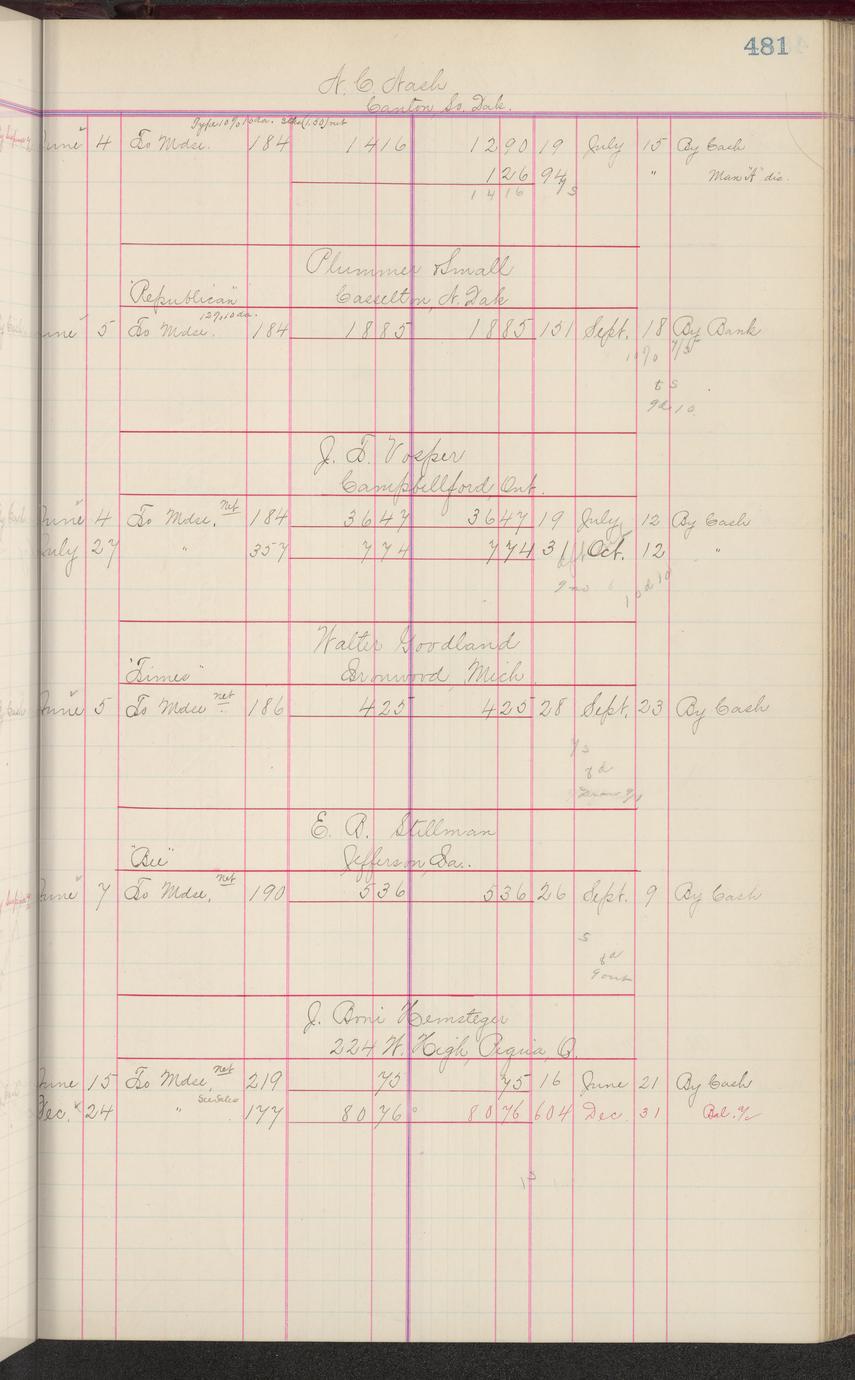 481
N. C. Nash
Canton So. Dak.
June 4 To Mdse. 184 1416 1290 19 July 15 By Cash
126 94 " Man "A" dis.
1416
Plummer & Small
"Republican" Casselton, N. Dak
June 5 To Mdse. 184 1885 1885 151 Sept. 18 By Bank
10%
J. T. Vosper
Campbellford, Ont.
June 4 To Mdse, net 184 3647 3647 19 July 12 By Cash
July 27 " 357 774 774 31 Oct. 12 "
Walter Goodland
"Times" Ironwood, Mich
June 5 To Mdse net 186 425 425 28 Sept. 23 By Cash
E. B. Stillman
"Bee" Jefferson, Ia.
June 7 To Mdse, net 190 536 536 26 Sept. 9 By Cash
J. Boni Hemsteger
224 W. High, Piqua, O.
June 15 To Mdse, net 219 75 75 16 June 21 By Cash
Dec. 24 " See Sales 177 8076 8076 604 Dec. 31 Bal.